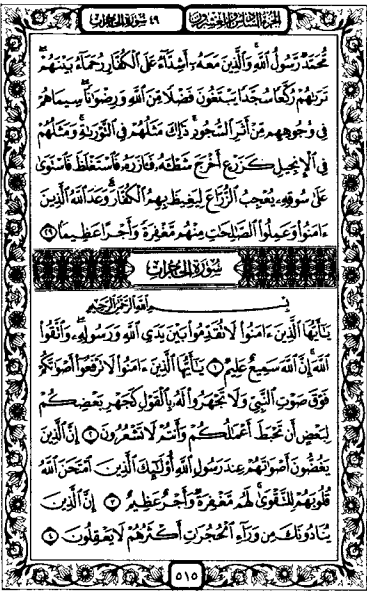 الجزء السادس والعشرون ٤٩ سورة الحجرات
مُّحَمَّدٌ رَّسُولُ اللَّهِ وَالَّذِينَ مَعَهُ أَشِدَّاءُ عَلَى الْكُفَّارِ رُحَمَاءُ بَيْنَهُمْ
تَرَىٰهُمْ رُكَّعًا سُجَّدًا يَبْتَغُونَ فَضْلًا مِّنَ اللَّهِ وَرِضْوَٰنًا سِيمَاهُمْ
فِي وُجُوهِهِم مِّنْ أَثَرِ السُّجُودِ ذَٰلِكَ مَثَلُهُمْ فِي التَّوْرَىٰةِ وَمَثَلُهُمْ
فِي الْإِنجِيلِ كَزَرْعٍ أَخْرَجَ شَطْـَٔهُ فَـَٔازَرَهُ فَاسْتَغْلَظَ فَاسْتَوَىٰ
عَلَىٰ سُوقِهِ يُعْجِبُ الزُّرَّاعَ لِيَغِيظَ بِهِمُ الْكُفَّارَ وَعَدَ اللَّهُ الَّذِينَ
ءَامَنُوا وَعَمِلُوا الصَّٰلِحَٰتِ مِنْهُم مَّغْفِرَةً وَأَجْرًا عَظِيمًا ٢٩
سُورَةُ الْحُجُرَاتِ
بِسْمِ اللَّهِ الرَّحْمَٰنِ الرَّحِيمِ
يَٰٓأَيُّهَا الَّذِينَ ءَامَنُوا لَا تُقَدِّمُوا بَيْنَ يَدَيِ اللَّهِ وَرَسُولِهِ وَاتَّقُوا
اللَّهَ إِنَّ اللَّهَ سَمِيعٌ عَلِيمٌ ١ يَٰٓأَيُّهَا الَّذِينَ ءَامَنُوا لَا تَرْفَعُوا أَصْوَٰتَكُمْ
فَوْقَ صَوْتِ النَّبِيِّ وَلَا تَجْهَرُوا لَهُ بِالْقَوْلِ كَجَهْرِ بَعْضِكُمْ
لِبَعْضٍ أَن تَحْبَطَ أَعْمَٰلُكُمْ وَأَنتُمْ لَا تَشْعُرُونَ ٢ إِنَّ الَّذِينَ
يَغُضُّونَ أَصْوَٰتَهُمْ عِندَ رَسُولِ اللَّهِ أُولَٰٓئِكَ الَّذِينَ امْتَحَنَ اللَّهُ
قُلُوبَهُمْ لِلتَّقْوَىٰ لَهُم مَّغْفِرَةٌ وَأَجْرٌ عَظِيمٌ ٣ إِنَّ الَّذِينَ
يُنَادُونَكَ مِن وَرَآءِ الْحُجُرَٰتِ أَكْثَرُهُمْ لَا يَعْقِلُونَ ٤
٥١٥